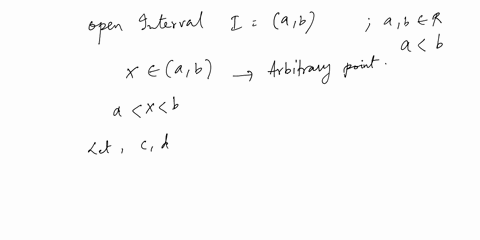 open Interval I = (a,b) ; a,b ∈ R
a < b
x ∈ (a,b) → Arbitrary point.
a < x < b
Let, c, d